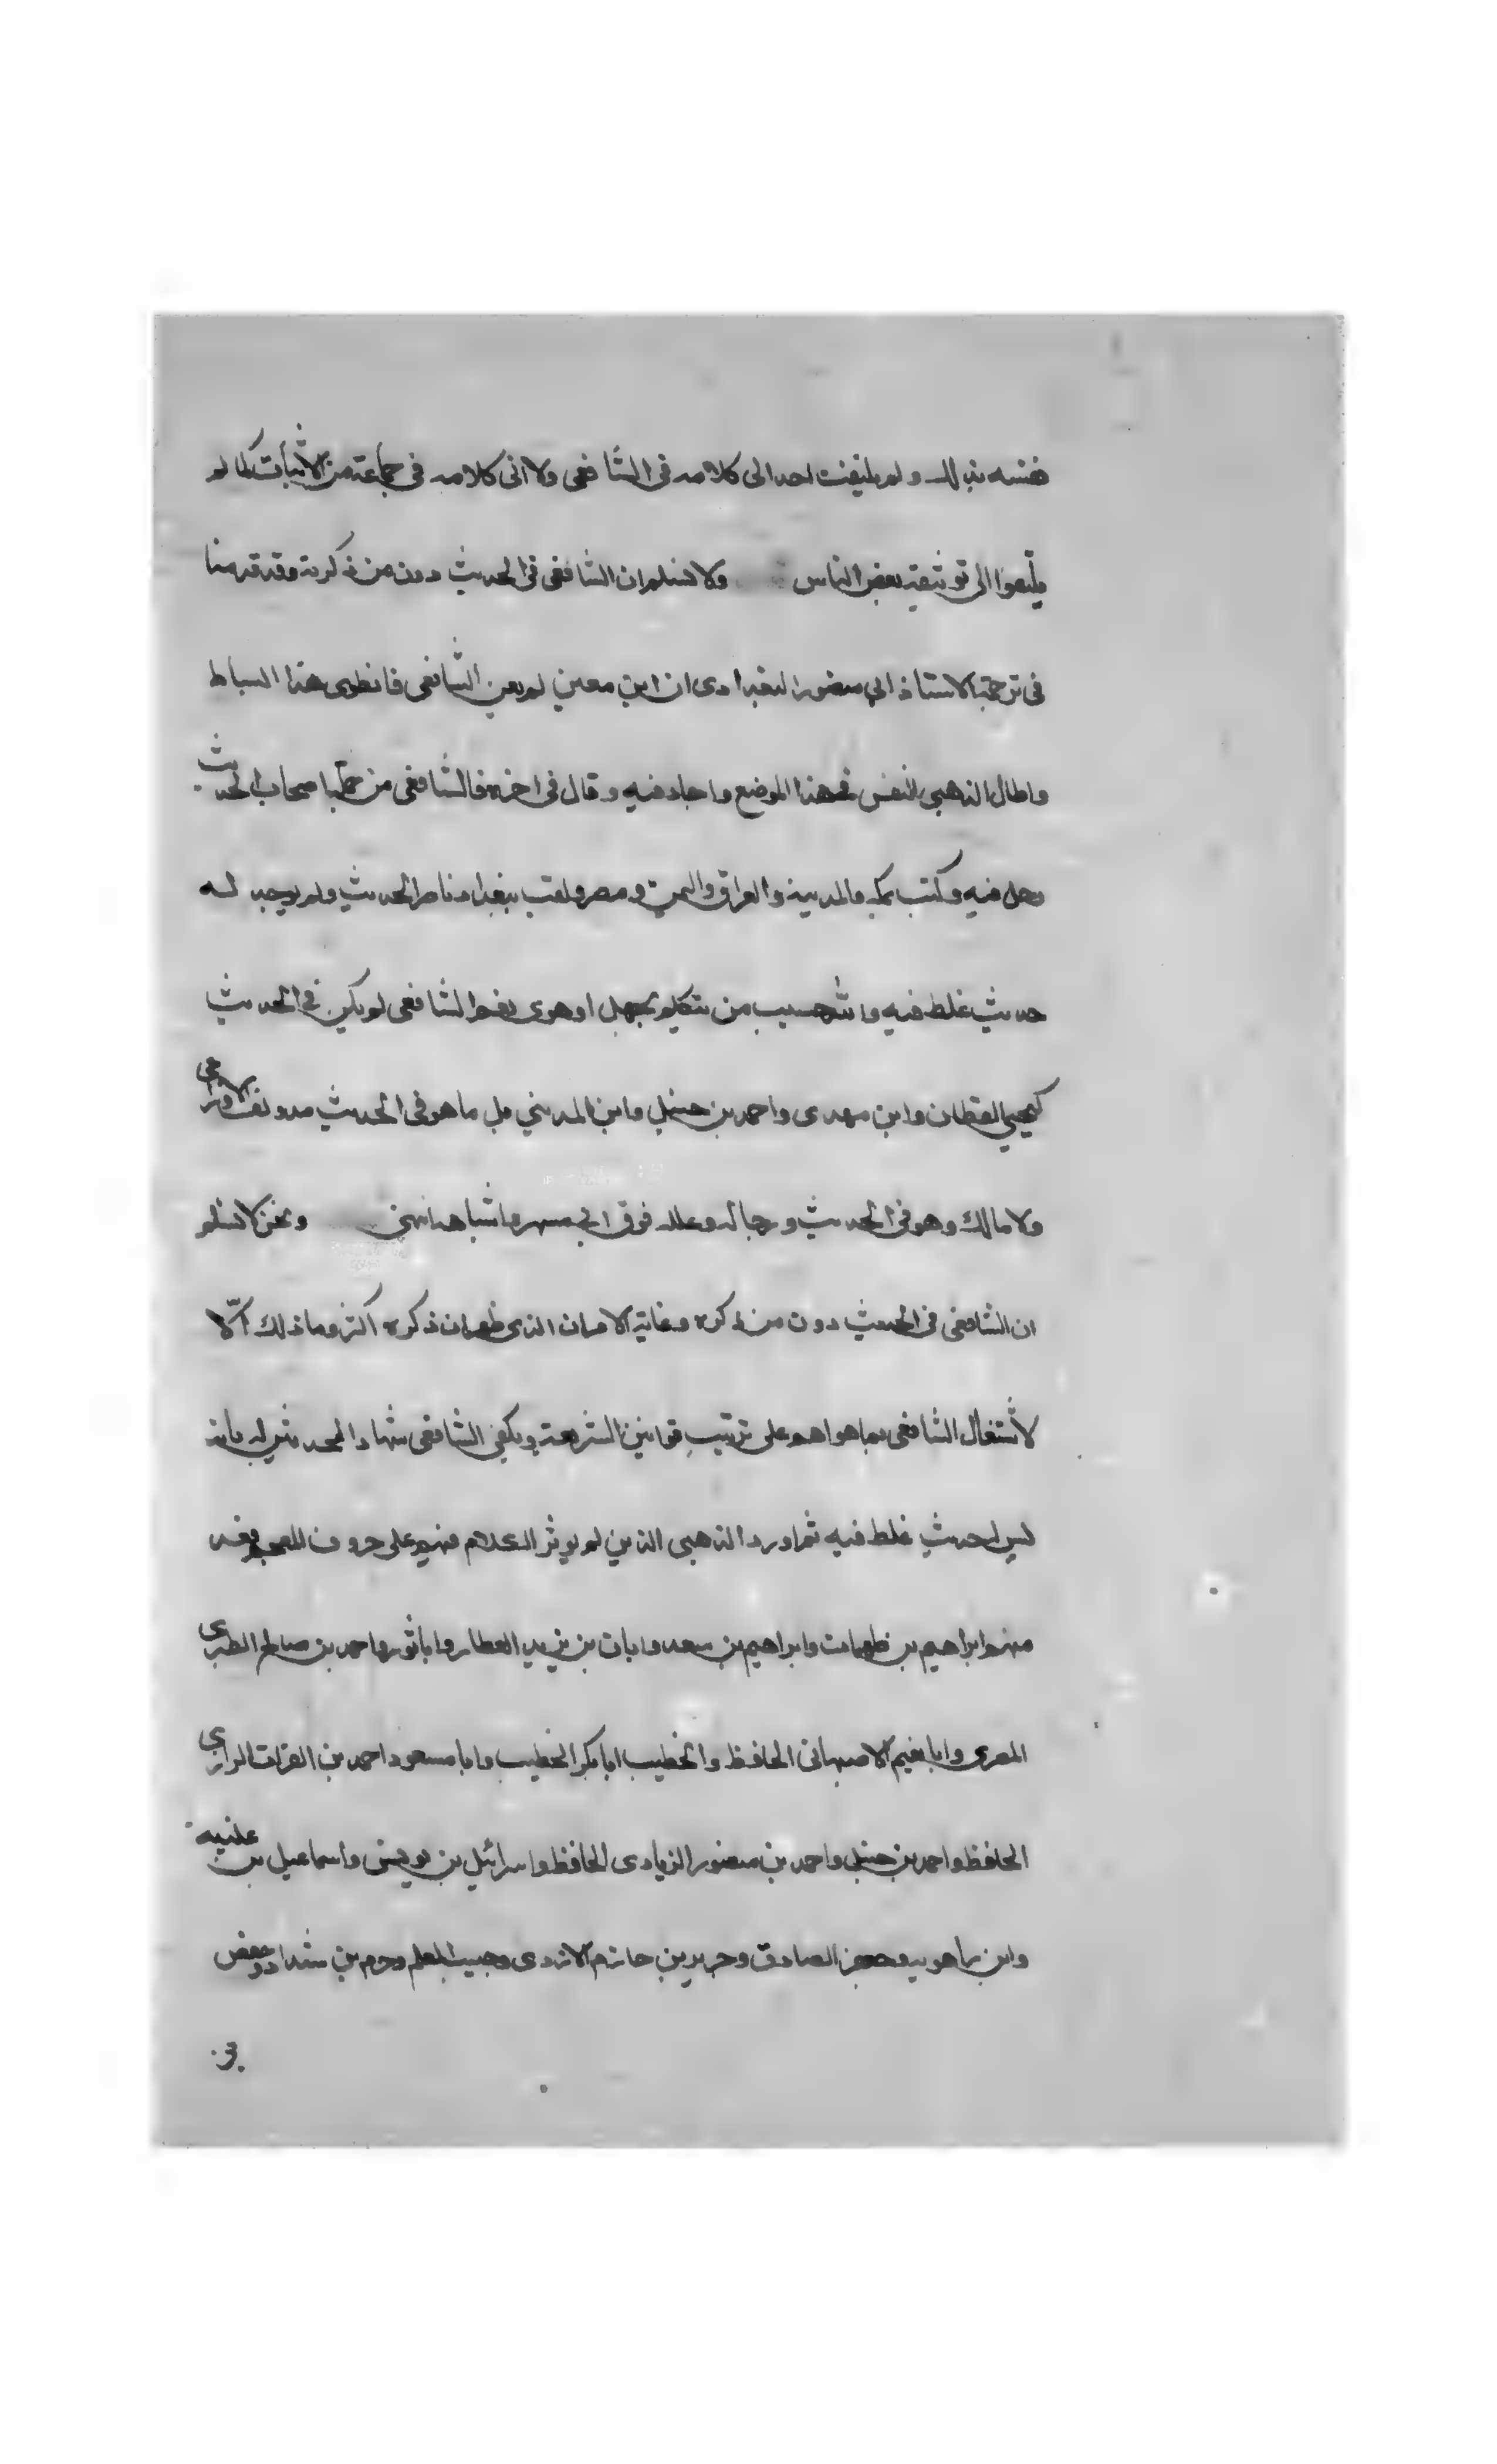 نفسه بذلك ولم يلتفت احد الى كلامه فى الشافعى ولا الى كلامه فى جماعة من الاثبات كما لم
يلتفتوا الى توثيقه بعض الناس ولا نسلم ان الشافعى فى الحديث دون من ذكرته وقد قدمنا
فى ترجمة الاستاذ ابى منصور البغدادى ان ابن معين لم يعن الشافعى فانطوى هذا البساط
واطال الذهبى النفس فى هذا الموضع واجاد فيه وقال فى اخره فالشافعى من جملة اصحاب الحديث
رحل فيه وكتب بمكة والمدينة والعراق واليمن ومصر ولقب ببغداد ناصر الحديث ولم يوجد له
حديث غلط فيه والله حسيب من يتكلم بجهل او هوى نعم الشافعى لم يكن فى الحديث
كيحيى القطان وابن مهدى واحمد بن حنبل وابن المدينى بل ما هو فى الحديث بدون الاوزاعى
ولا مالك وهو فى الحديث ورجاله وعلله فوق ابى مسهر واشباهه انتهى ونحن لا نسلم
ان الشافعى فى الحديث دون من ذكره وغاية الامر ان الذى ظهر ان ذكره اكثر وما ذلك الّا
لاشتغال الشافعى بما هو اهم على ترتيب قوانين الشريعة ويكفى الشافعى شهادة المحدثين له بانه
ليس له حديث غلط فيه ثم اورد الذهبى الذين لم يوثر الكلام فيهم على حروف المعجم فعد
منهم ابراهيم بن طهمان وابراهيم بن سعد وابان بن يزيد العطار وابا ثور واحمد بن صالح الطبرى
المصرى وابا نعيم الاصبهانى الحافظ والخطيب ابا بكر الخطيب وابا مسعود احمد بن الفرات الرازى
الحافظ واحمد بن حنبل واحمد بن منصور الزيادى الحافظ واسرائيل بن يونس واسماعيل بن علية
وابن راهويه وجعفر الصادق وجرير بن حازم الازدى وحبيب المعلم وحرب بن شداد وحفص